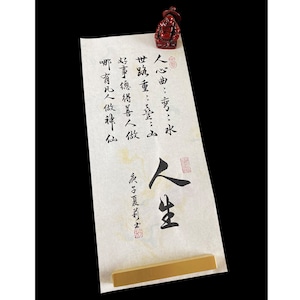 人心曲：彎：水
世路重：疊：山
好事總得善人做
哪有凡人做神仙
人生
庚子夏莉书